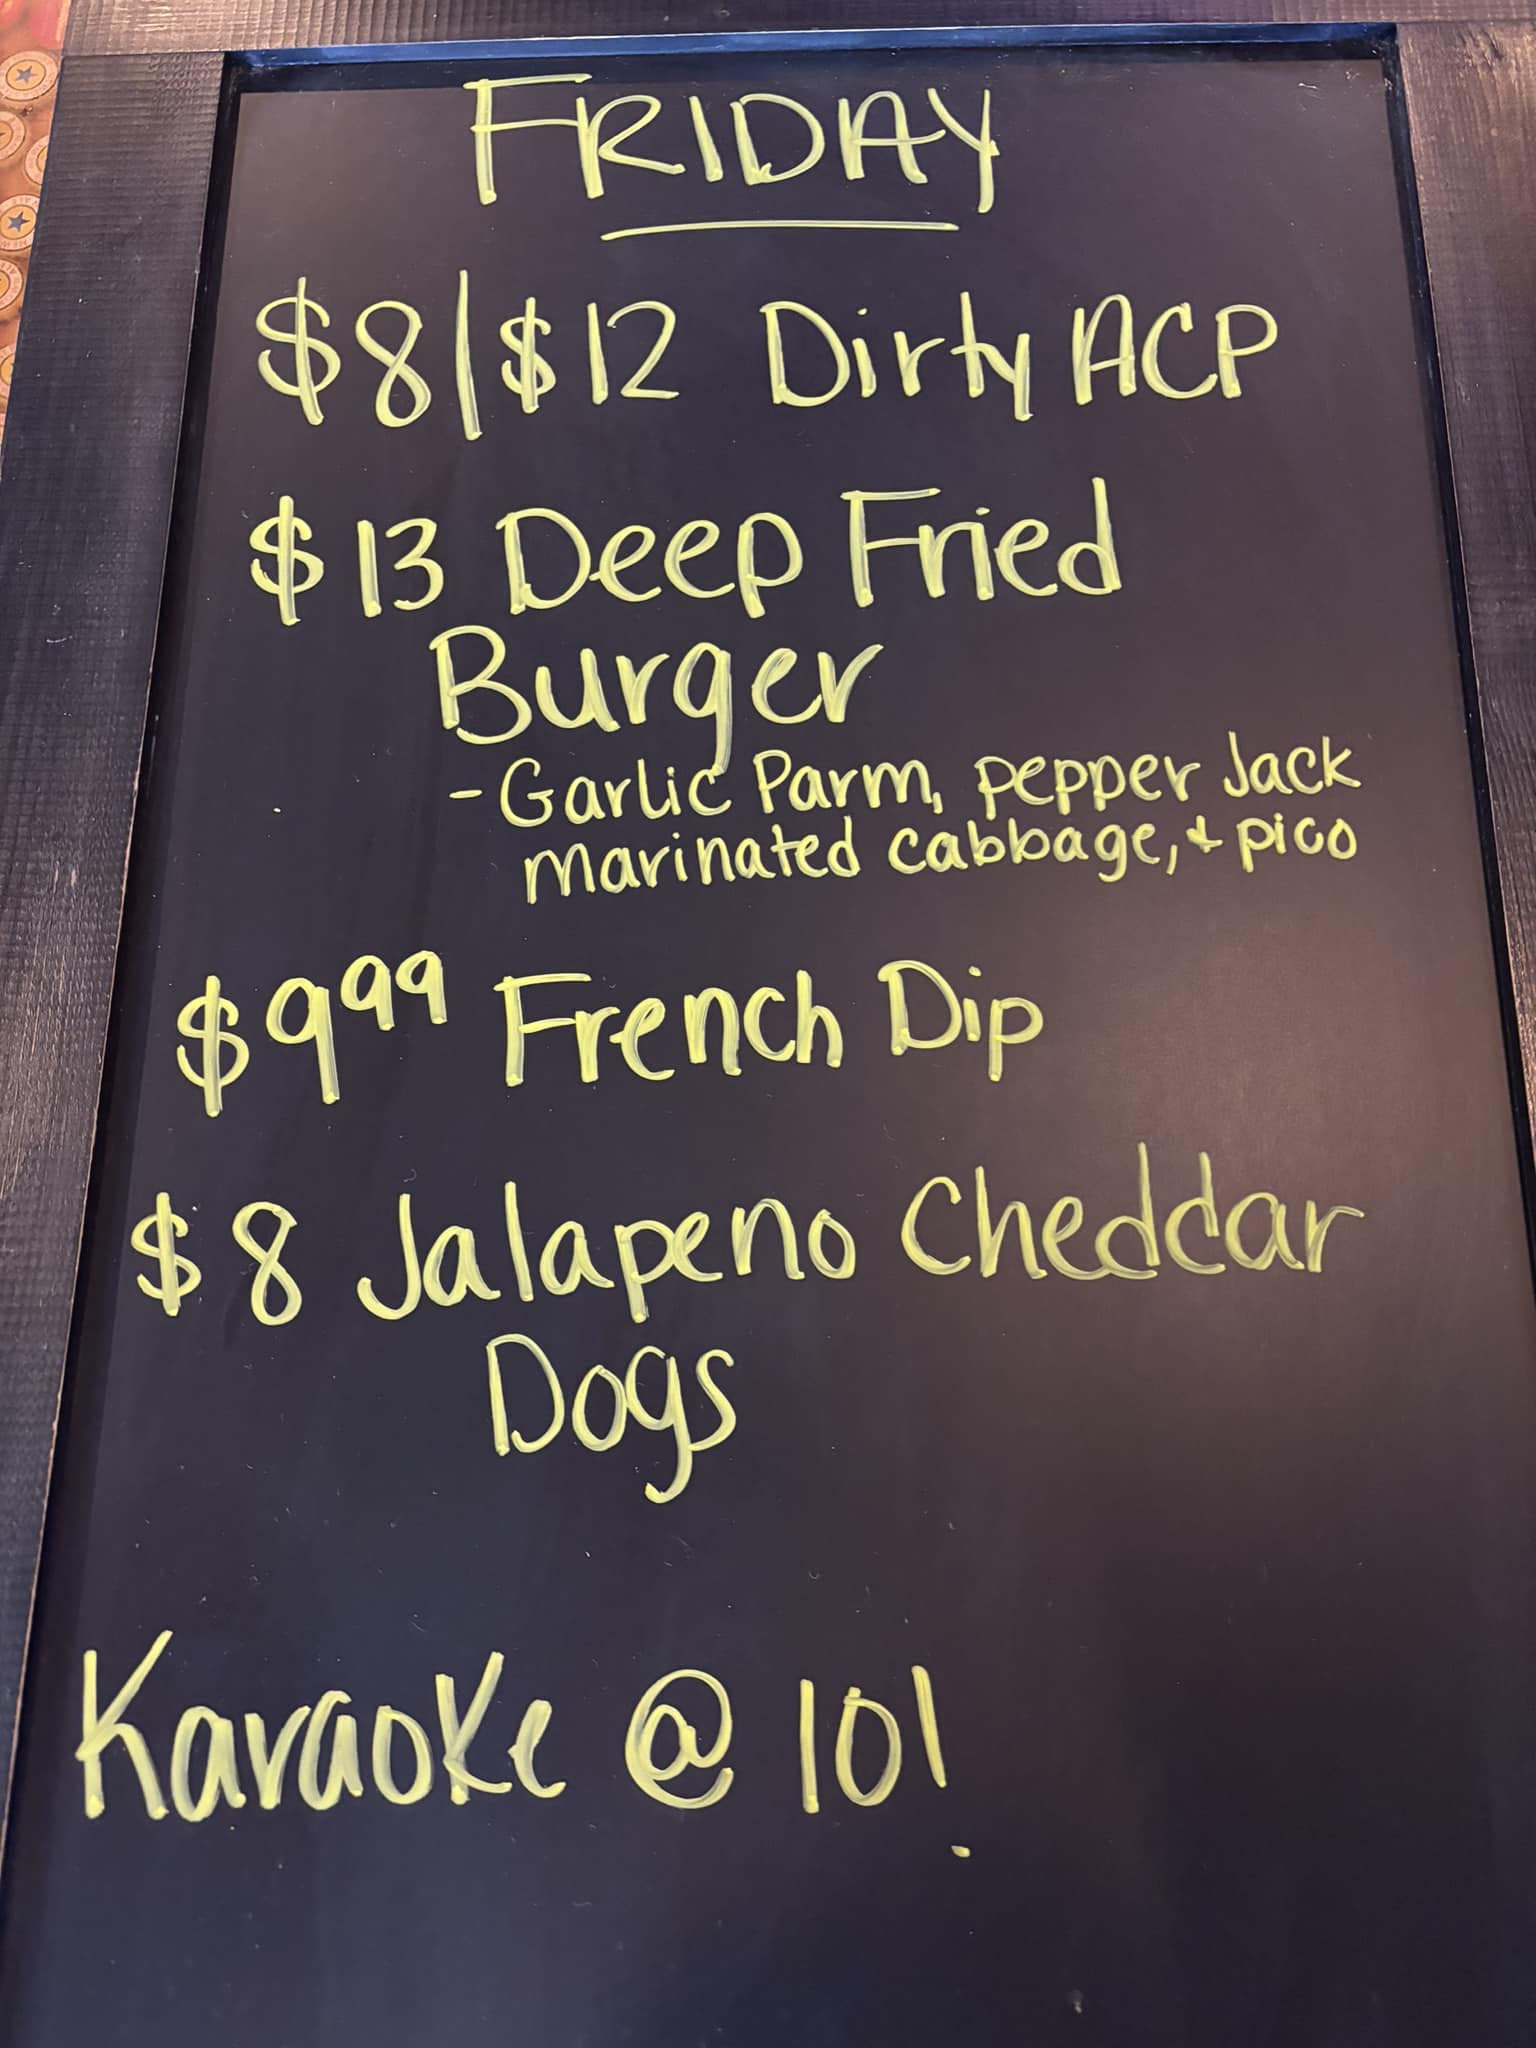 FRIDAY
$8/$12 Dirty ACP
$13 Deep Fried
Burger
- Garlic Parm, pepper Jack
marinated cabbage, + pico
$9.99 French Dip
$8 Jalapeno Cheddar
Dogs
Karaoke @ 10!